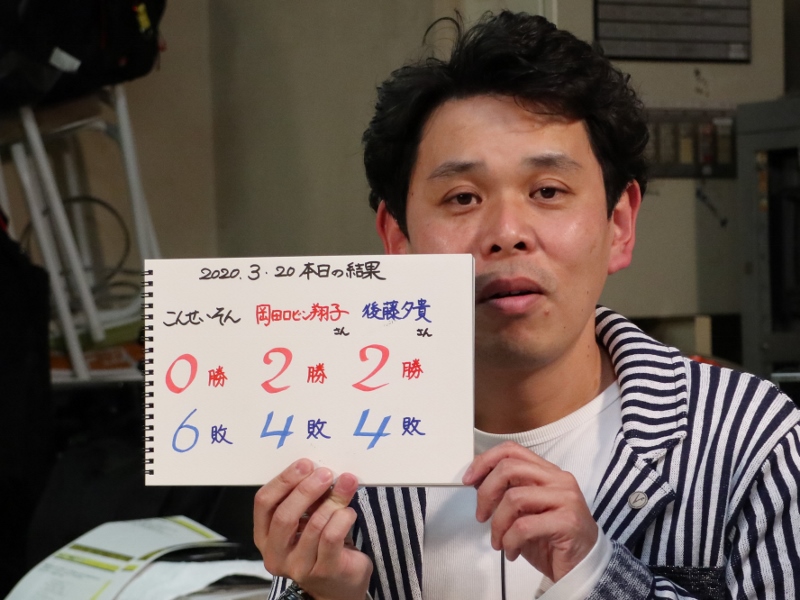 2020.3.20 本日の結果
こんせいそん 岡田ロビン翔子さん 後藤夕貴さん
0勝 2勝 2勝
6敗 4敗 4敗